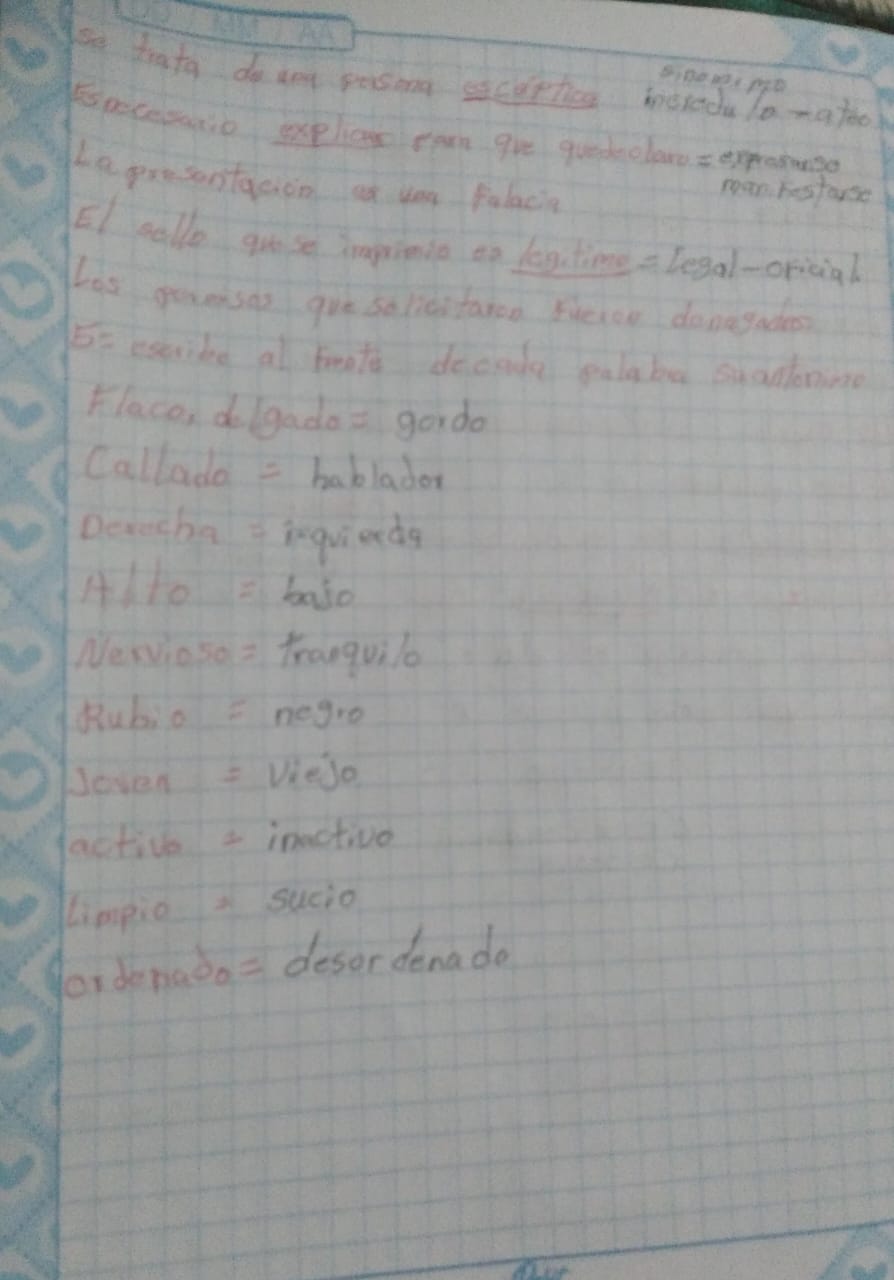 DD / MM / AA
Se trata de una persona escéptica sinonimo incredulo - ateo
Es necesario explicar para que quede claro = expresarse
manifestarse
La presentación es una Falacia
El sello que se imprimio es legitimo = Legal - oficial
Los permisos que solicitaron Fueron denegados
5= escribe al frente de cada palaba su antonimo
Flaco, delgado = gordo
Callado = hablador
Derecha = izquierda
Alto = bajo
Nervioso = tranquilo
Rubio = negro
Joven = viejo
activo = inactivo
Limpio = sucio
ordenado = desordenado